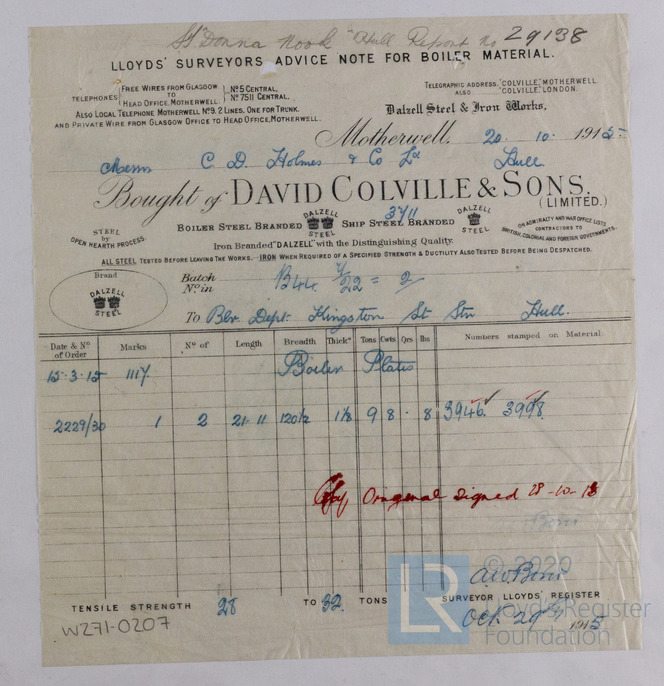 St "Donna Nook" Hull Report No 29138
LLOYDS' SURVEYORS ADVICE NOTE FOR BOILER MATERIAL.
TELEPHONES FREE WIRES FROM GLASGOW TO HEAD OFFICE, MOTHERWELL. No 5 CENTRAL, No 7511 CENTRAL.
ALSO LOCAL TELEPHONE MOTHERWELL No 9. 2 LINES. ONE FOR TRUNK.
AND PRIVATE WIRE FROM GLASGOW OFFICE TO HEAD OFFICE, MOTHERWELL.
TELEGRAPHIC ADDRESS, "COLVILLE" MOTHERWELL.
ALSO "COLVILLE" LONDON.
Dalzell Steel & Iron Works,
Motherwell, 20. 10. 1915
Messrs C. D. Holmes & Co Ld Hull
Bought of DAVID COLVILLE & SONS.
(LIMITED.)
STEEL by OPEN HEARTH PROCESS.
BOILER STEEL BRANDED DALZELL STEEL 3711 SHIP STEEL BRANDED DALZELL STEEL
ON ADMIRALTY AND WAR OFFICE LISTS
CONTRACTORS TO
BRITISH, COLONIAL AND FOREIGN GOVERNMENTS.
Iron Branded "DALZELL" with the Distinguishing Quality.
ALL STEEL TESTED BEFORE LEAVING THE WORKS. IRON WHEN REQUIRED OF A SPECIFIED STRENGTH & DUCTILITY ALSO TESTED BEFORE BEING DESPATCHED.
Brand
DALZELL
STEEL
Batch
No in B44 4/22 = 2
To Blr. Dept. Kingston St Stn Hull.
Date & No of Order Marks No of Length Breadth Thickss Tons Cwts Qrs lbs Numbers stamped on Material
Boiler Plates
15-3-15 1117
2229/30 1 2 21. 11 120½ 1⅛ 9 8 . 8 3946. 3998.
Original signed 28-10-15
© 2020
A.W. Binns
TENSILE STRENGTH 28 TO 32 TONS
SURVEYOR LLOYDS' REGISTER
Oct. 29th 1915
LR Lloyd's Register
Foundation
W271-0207